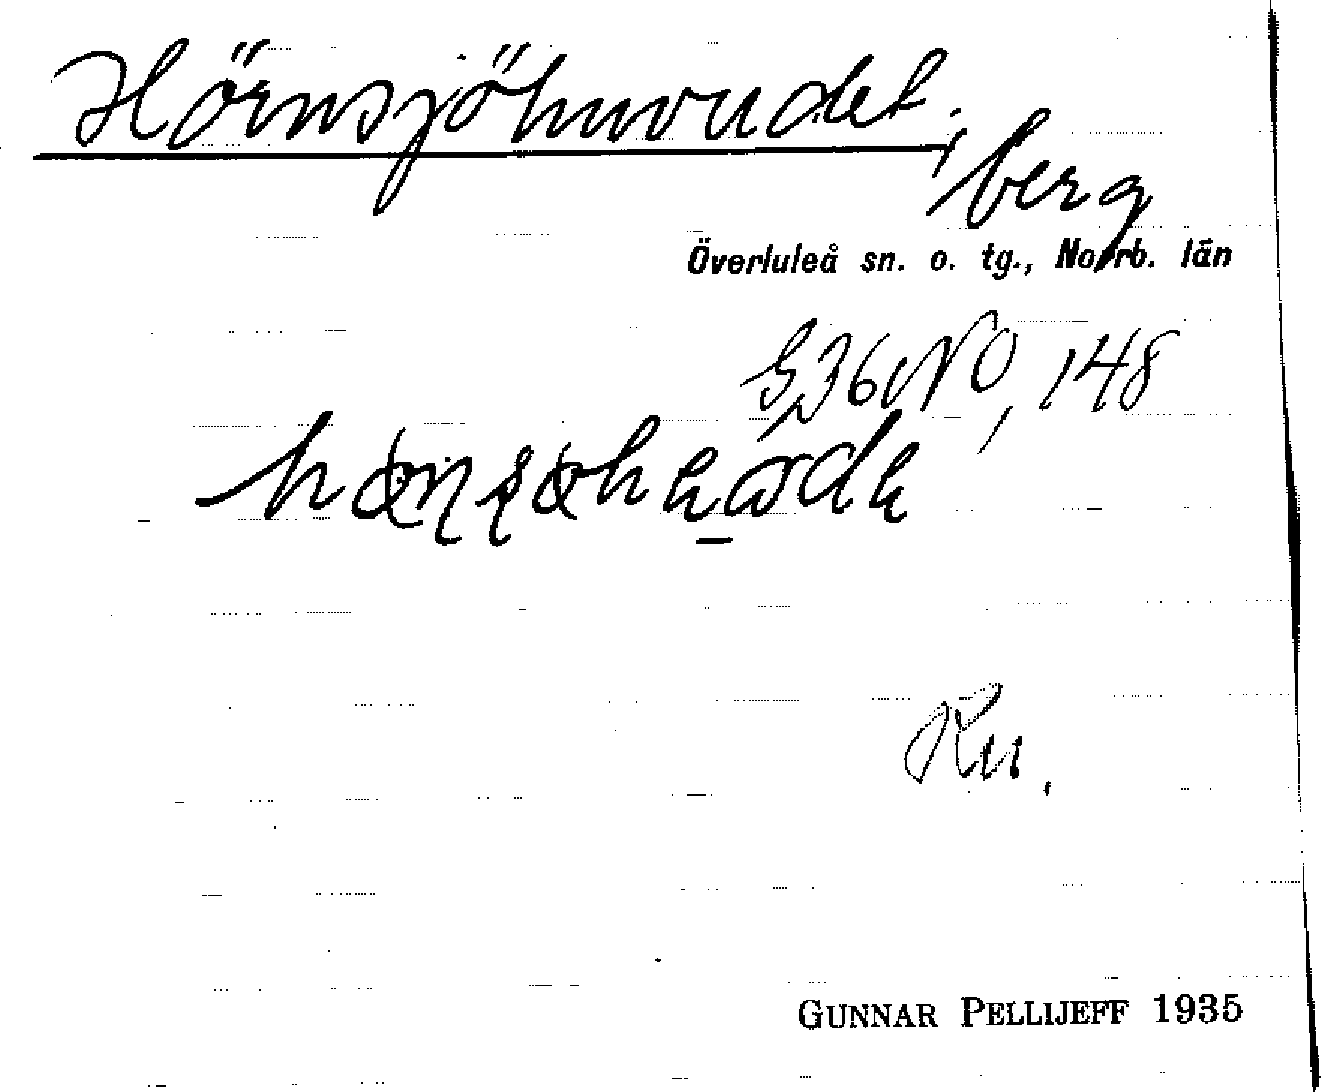 Hörnsjöhuvudet,
berg
Överluleå sn. o. tg., Norrb. län
36 NO, 148
Ru.
GUNNAR PELLIJEFF 1935